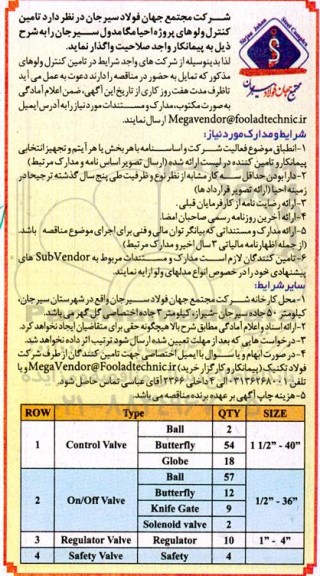 شرکت مجتمع جهان فولاد سیرجان در نظر دارد تامین
کنترل ولو های پروژه احیا مگا مدول سیرجان را به شرح
ذیل به پیمانکار واجد صلاحیت واگذار نماید.
لذا بدینوسیله از شرکت های واجد شرایط در تامین کنترل ولوهای
مذکور که تمایل به حضور در مناقصه را دارند دعوت به عمل می آید
ظرف مدت هفت روز کاری از تاریخ این آگهی، ضمن اعلام آمادگی
به صورت مکتوب، مدارک و مستندات مورد نیاز را به آدرس ایمیل
Megavendor@fooladtechnic.ir ارسال نمایند.
Sirjan Jahan Steel Complex
مجتمع جهان فولاد سیرجان
شرایط و مدارک مورد نیاز:
۱-انطباق موضوع فعالیت شرکت و اساسنامه با هر بخش یا هر آیتم و تجهیز انتخابی
پیمانکار و تامین کننده در لیست ارائه شده (ارسال تصویر اساس نامه و مدارک مرتبط)
۲-دارا بودن حداقل سه کار مشابه از نظر نوع و ظرفیت طی پنج سال گذشته ترجیحا در
زمینه احیا (ارائه تصویر قرارداد ها)
۳- ارائه رضایت نامه از کارفرمایان قبلی.
۴- ارائه آخرین روزنامه رسمی صاحبان امضا.
۵- ارائه مدارک و مستنداتی که بیانگر توان مالی و فنی برای اجرای موضوع مناقصه باشد.
(از جمله اظهارنامه مالیاتی ۳ سال اخیر و مدارک مرتبط)
۶-تامین کنندگان لازم است مدارک و مستندات مربوط به SubVendor های
پیشنهادی خود را در خصوص انواع مدلهای ولو ارایه نمایند.
سایر شرایط:
۱- محل کارخانه شرکت مجتمع جهان فولاد سیرجان واقع در شهرستان سیرجان،
کیلومتر ۵۰ جاده سیرجان -شیراز، کیلومتر ۲ جاده اختصاصی گل گهر می باشد.
۲- ارائه اسناد و اعلام آمادگی مطابق شرح بالا هیچگونه حقی برای متقاضیان ایجاد نخواهد کرد.
۳-درخواست هایی که بعد از مهلت تعیین شده ارسال شود ترتیب اثر داده نخواهد شد.
۴- در صورت ابهام و یا سوال با ایمیل اختصاصی جهت تامین کنندگان از طرف شرکت
فولاد تکنیک (پیمانکار و کارگزار خرید) MegaVendor@Fooladtechnic.ir و یا
تلفن ۰۳۱۳۶۲۶۸۰۰۱ الی ۴ داخلی ۲۳۶۶ آقای عباسی تماس حاصل شود.
۵- هزینه چاپ آگهی بر عهده برنده مناقصه می باشد.
ROW Type QTY SIZE
1 Control Valve Ball 2 1 1/2" - 40"
Butterfly 54
Globe 18
2 On/Off Valve Ball 57 1/2" - 36"
Butterfly 12
Knife Gate 9
Solenoid valve 2
3 Regulator Valve Regulator 10 1" - 4"
4 Safety Valve Safety 4